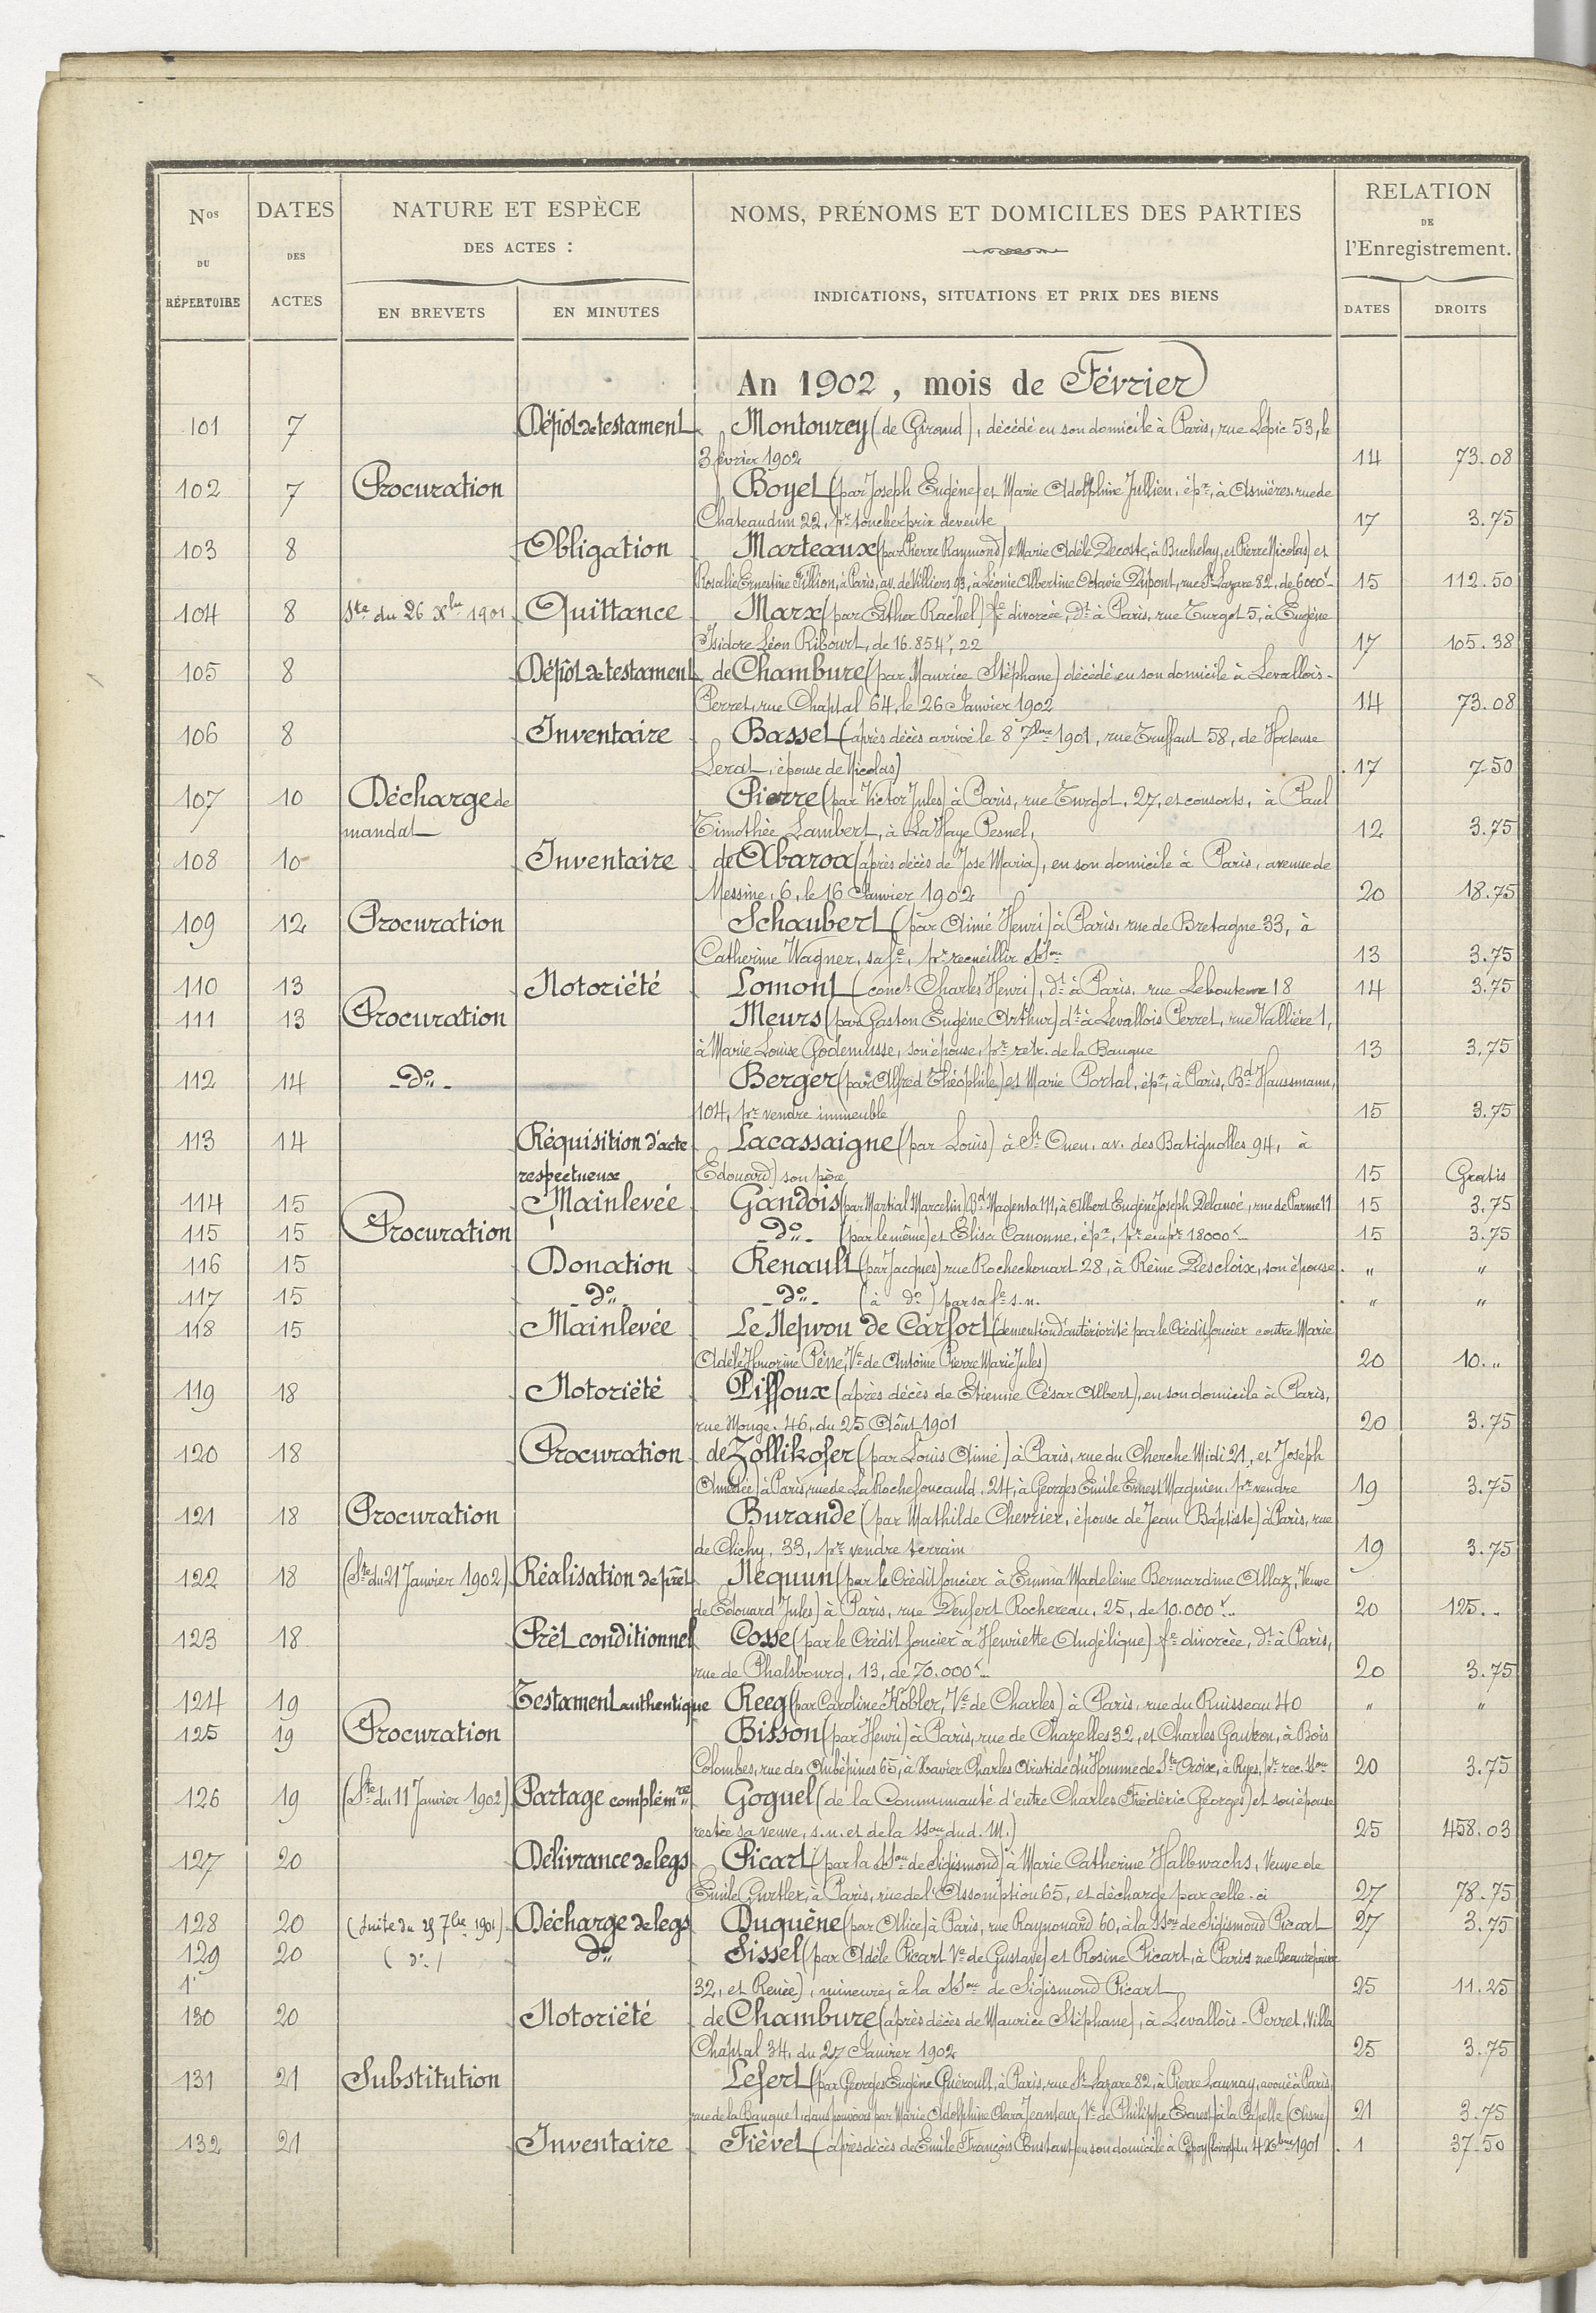 Nos DU RÉPERTOIRE
DATES DES ACTES
NATURE ET ESPÈCE DES ACTES :
EN BREVETS
EN MINUTES
NOMS, PRÉNOMS ET DOMICILES DES PARTIES
INDICATIONS, SITUATIONS ET PRIX DES BIENS
RELATION DE l'Enregistrement.
DATES
DROITS
An 1902, mois de Février
101 7 Dépôt de testament Montourcy (de Giroud), décédé en son domicile à Paris, rue Lepic 53, le
3 février 1902 14 73.08
102 7 Procuration Boyet (par Joseph Eugène) et Marie Adolphine Jullien, épx, à Asnières, rue de
Chateaudun 22, pr toucher prix de vente 17 3.75
103 8 Obligation Marteaux (par Pierre Raymond) & Marie Adèle Decoste, à Buchelay, et Pierre Nicolas) et
Rosalie Ernestine Fillion, à Paris, av. de Villiers 93, à Léonie Albertine Octavie Dupont, rue St Lazare 82, de 6000f 15 112.50
104 8 Ste du 26 Xbre 1901 Quittance Marx (par Esther Rachel) fe divorcée, dt à Paris, rue Turgot 5, à Eugène
Isidore Léon Ribourt, de 16.854f, 22 17 105.38
105 8 Dépôt de testament de Chambure (par Maurice Stéphane) décédé en son domicile à Levallois-
Perret, rue Chaptal 64, le 26 Janvier 1902 14 73.08
106 8 Inventaire Basset (après décès arrivé le 8 7bre 1901, rue Truffaut 58, de Hortense
Lerat, épouse de Nicolas) 17 7.50
107 10 Décharge de Pierre (par Victor Jules) à Paris, rue Turgot, 27, et consorts, à Paul
mandat Timothée Lambert, à La Haye Pesnel, 12 3.75
108 10 Inventaire de Abaroa (après décès de Jose Maria), en son domicile à Paris, avenue de
Messine, 6, le 16 Janvier 1902 20 18.75
109 12 Procuration Schaubert (par Aimé Henri) à Paris, rue de Bretagne 33, à
Catherine Wagner, sa fe, pr recueillir SSon 13 3.75
110 13 Notoriété Lomont (conct Charles Henri), dt à Paris, rue Lebouteux 18 14 3.75
111 13 Procuration Meurs (par Gaston Eugène Arthur) dt à Levallois Perret, rue Vallière 1,
à Marie Louise Godemusse, son épouse, pr retr. de la Banque 13 3.75
112 14 do Berger (par Alfred Théophile) et Marie Portal, épx, à Paris, Bd Haussmann,
104, pr vendre immeuble 15 3.75
113 14 Réquisition d'acte Lacassaigne (par Louis) à St Ouen, av. des Batignolles 94, à
respectueux Edouard) son père 15 Gratis
114 15 Mainlevée Gandois (par Martial Marcelin) Bd Magenta 111, à Albert Eugène Joseph Delanoé, rue de Parme 11 15 3.75
115 15 Procuration do (par le même) et Elisa Canonne, épx, pr empr 18000f 15 3.75
116 15 Donation Renault (par Jacques) rue Rochechouart 28, à Reine Descloix, son épouse " "
117 15 do do (à do) par sa fe s.n. " "
118 15 Mainlevée Le Nepvou de Carfort (de mention d'antériorité par le Crédit foncier contre Marie
Adèle Honorine Pène, Ve de Antoine Pierre Marie Jules) 20 10."
119 18 Notoriété Piffoux (après décès de Etienne César Albert), en son domicile à Paris,
rue Monge, 46, du 25 Août 1901 20 3.75
120 18 Procuration de Zollikofer (par Louis Aimé) à Paris, rue du Cherche Midi 21, et Joseph
Amédée) à Paris, rue de La Rochefoucauld, 24, à Georges Emile Ernest Magnien, pr vendre 19 3.75
121 18 Procuration Burande (par Mathilde Chevrier, épouse de Jean Baptiste) à Paris, rue
de Clichy, 33, pr vendre terrain 19 3.75
122 18 (Ste du 21 Janvier 1902) Réalisation de prêt Nequun (par le Crédit foncier à Emma Madeleine Bernardine Allaz, Veuve
de Edouard Jules) à Paris, rue Denfert Rochereau, 25, de 10.000f 20 125."
123 18 Prêt conditionnel Cosse (par le Crédit foncier à Henriette Angélique) fe divorcée, dt à Paris,
rue de Phalsbourg, 13, de 70.000f 20 3.75
124 19 Testament authentique Reeg (par Caroline Kobler, Ve de Charles) à Paris, rue du Ruisseau 40 " "
125 19 Procuration Bisson (par Henri) à Paris, rue de Chazelles 32, et Charles Gautron, à Bois
Colombes, rue des Aubépines 65, à Xavier Charles Aristide du Homme de Ste Croix, à Ryes, pr rec. SSon 20 3.75
126 19 (Ste du 11 Janvier 1902) Partage complémre Goguel (de la Communauté d'entre Charles Frédéric Georges) et son épouse
restée sa veuve, s.n. et de la SSon dud. M.) 25 458.03
127 20 Délivrance de legs Picart (par la SSon de Sigismond) à Marie Catherine Halbwachs, Veuve de
Emile Gurtler, à Paris, rue de l'Assomption 65, et décharge par celle-ci 27 78.75
128 20 (Suite du 28 7bre 1901) Décharge de legs Duquêne (par Alice) à Paris, rue Raynouard 60, à la SSon de Sigismond Picart 27 3.75
129 20 (do) do Sissel (par Adèle Picart Ve de Gustave) et Rosine Picart, à Paris rue Beaurepaire
1' 32, et Renée), mineure, à la SSon de Sigismond Picart 25 11.25
130 20 Notoriété de Chambure (après décès de Maurice Stéphane), à Levallois-Perret, Villa
Chaptal 34, du 27 Janvier 1902 25 3.75
131 21 Substitution Lefert (par Georges Eugène Guéroult, à Paris, rue St Lazare 82, à Pierre Launay, avoué à Paris,
rue de la Banque 1, dans pouvoirs par Marie Adolphine Clara Jeanteur, Ve de Philippe Ernest) à la Capelle (Aisne) 21 3.75
132 21 Inventaire Fiévet (après décès de Emile François Constant) en son domicile à Cepoy (Loiret) du 4 Xbre 1901 1 37.50